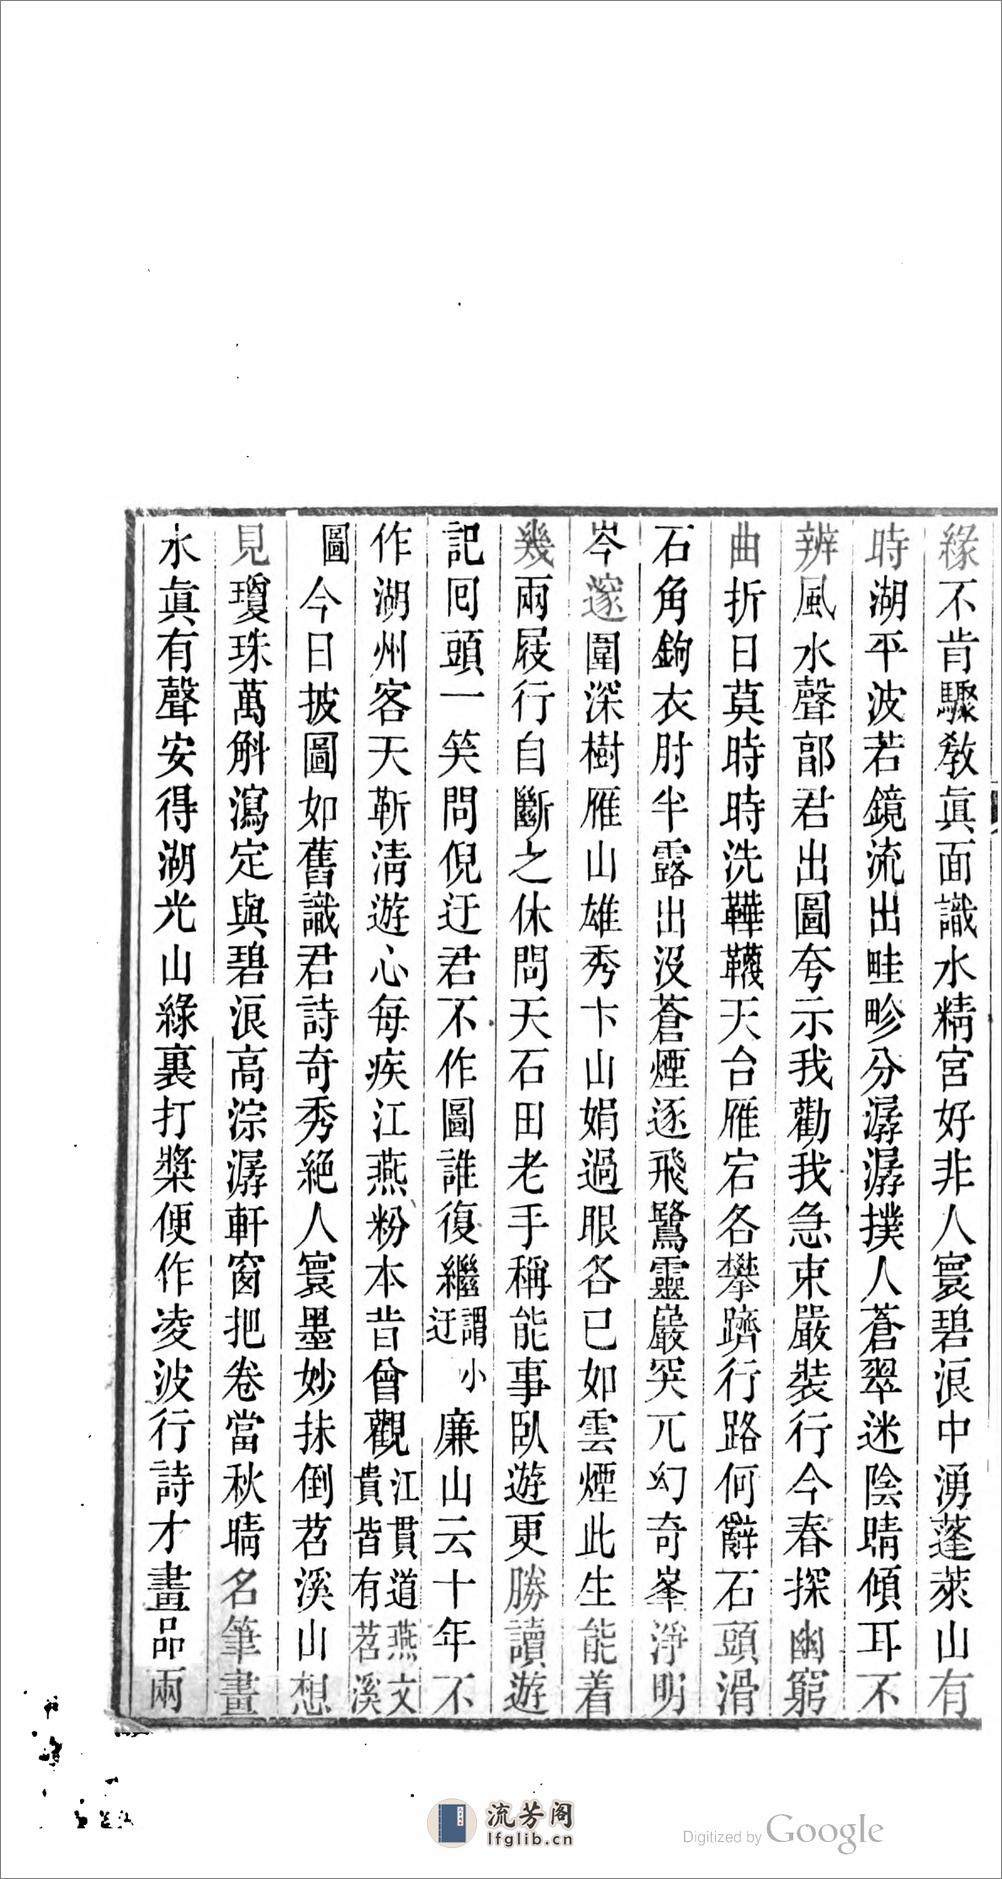 緣不肯驟教眞面識水精宮好非人寰碧浪中湧蓬萊山有
時湖平波若鏡流出畦畛分潺潺撲人蒼翠迷陰晴傾耳不
辨風水聲部君出圖夸示我勸我急束嚴裝行今春探幽窮
曲折日莫時時洗鞾韈天台雁宕各攀躋行路何辭石頭滑
石角鉤衣肘半露出沒蒼煙逐飛鷺靈巖突兀幻奇峯淨明
岑邃圍深樹雁山雄秀卞山娟過眼各已如雲煙此生能着
幾兩屐行自斷之休問天石田老手稱能事臥遊更勝讀遊
記回頭一笑問倪迂君不作圖誰復繼謂小迂廉山云十年不
作湖州客天靳清遊心每疾江燕粉本昔曾觀江貫道燕文貴皆有苕溪
圖今日披圖如舊識君詩奇秀絕人寰墨妙抹倒苕溪山想
見瓊珠萬斛瀉定與碧浪高淙潺軒窗把卷當秋晴名筆畫
水眞有聲安得湖光山綠裏打槳便作凌波行詩才畫品兩
流芳阁
lfglib.cn
Digitized by Google